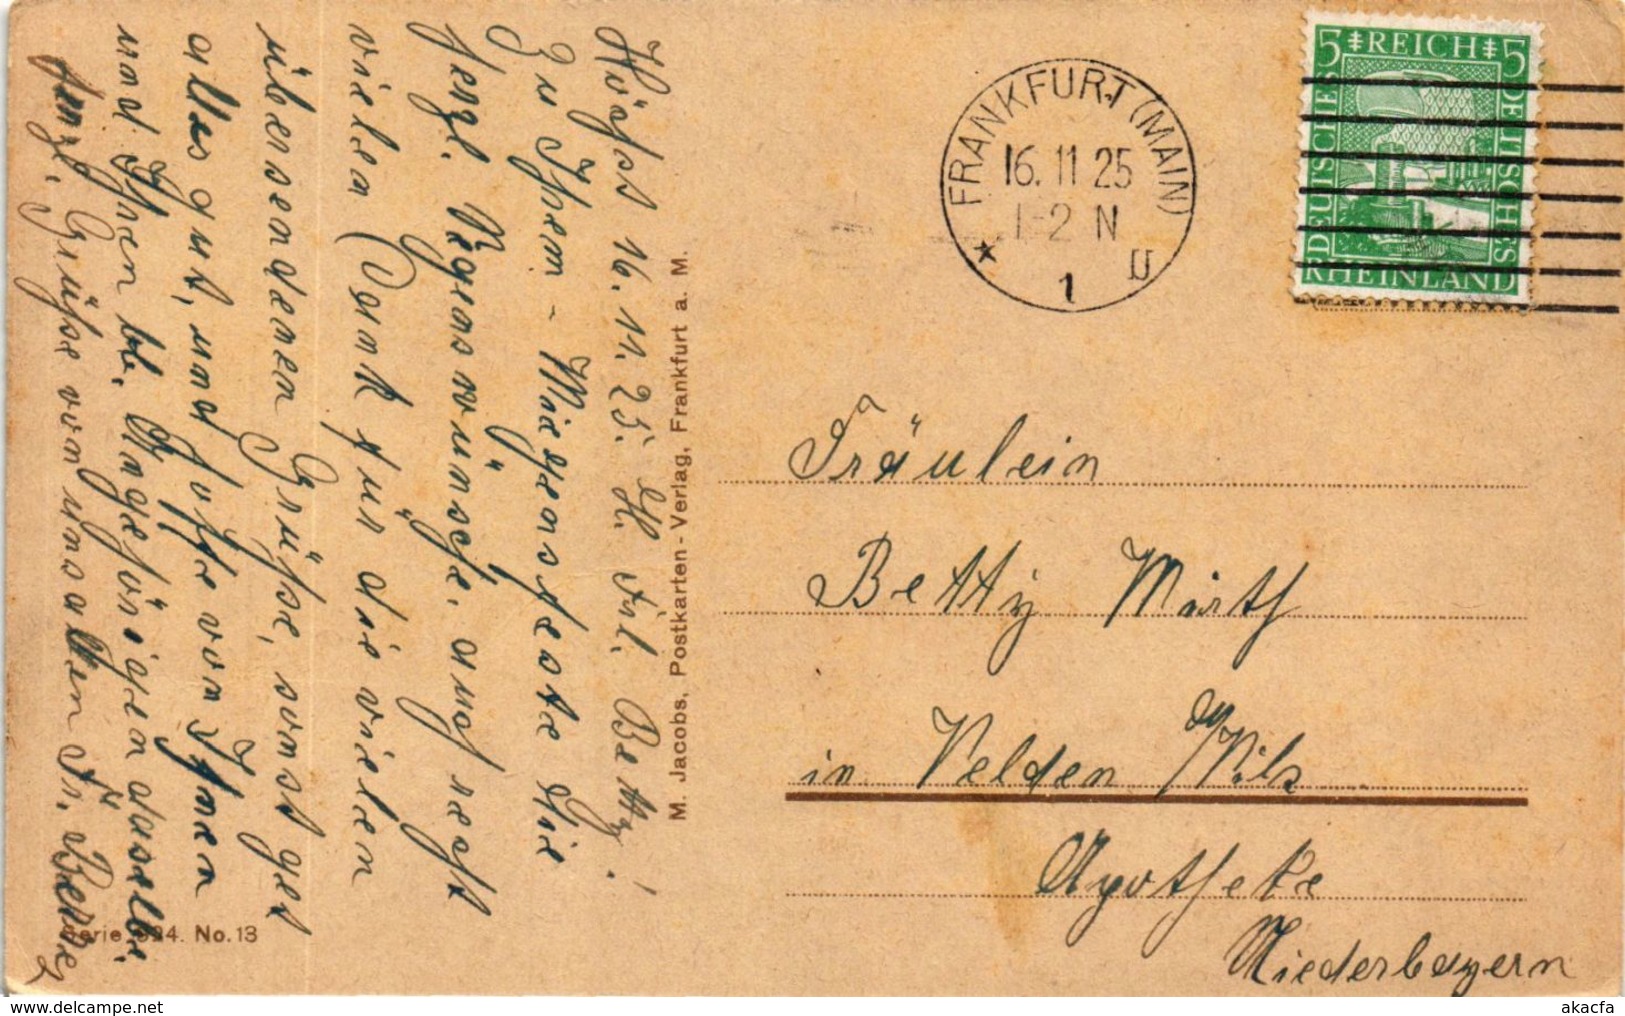 Höchst 16.11.25. Lb. Frl. Betty!
Zu Ihrem - Wiegenfeste die
herzl. Segenswünsche, auch recht
vielen Dank für die vielen
übersendeten Grüße, sonst geht
alles gut, und hoffe von Ihnen
und Ihren lb. Angehörigen dasselbe.
Herzl. Grüße von uns allen Fr.
Serie 524. No. 13
M. Jacobs, Postkarten-Verlag, Frankfurt a. M.
FRANKFURT (MAIN)
16. 11 25
1-2 N
* 1 U
5 REICH 5
DEUTSCHES
DEUTSCHES
RHEINLAND
Fräulein
Betty Wirth
in Velden a/Vils
Apotheke
Niederbayern
akacfa